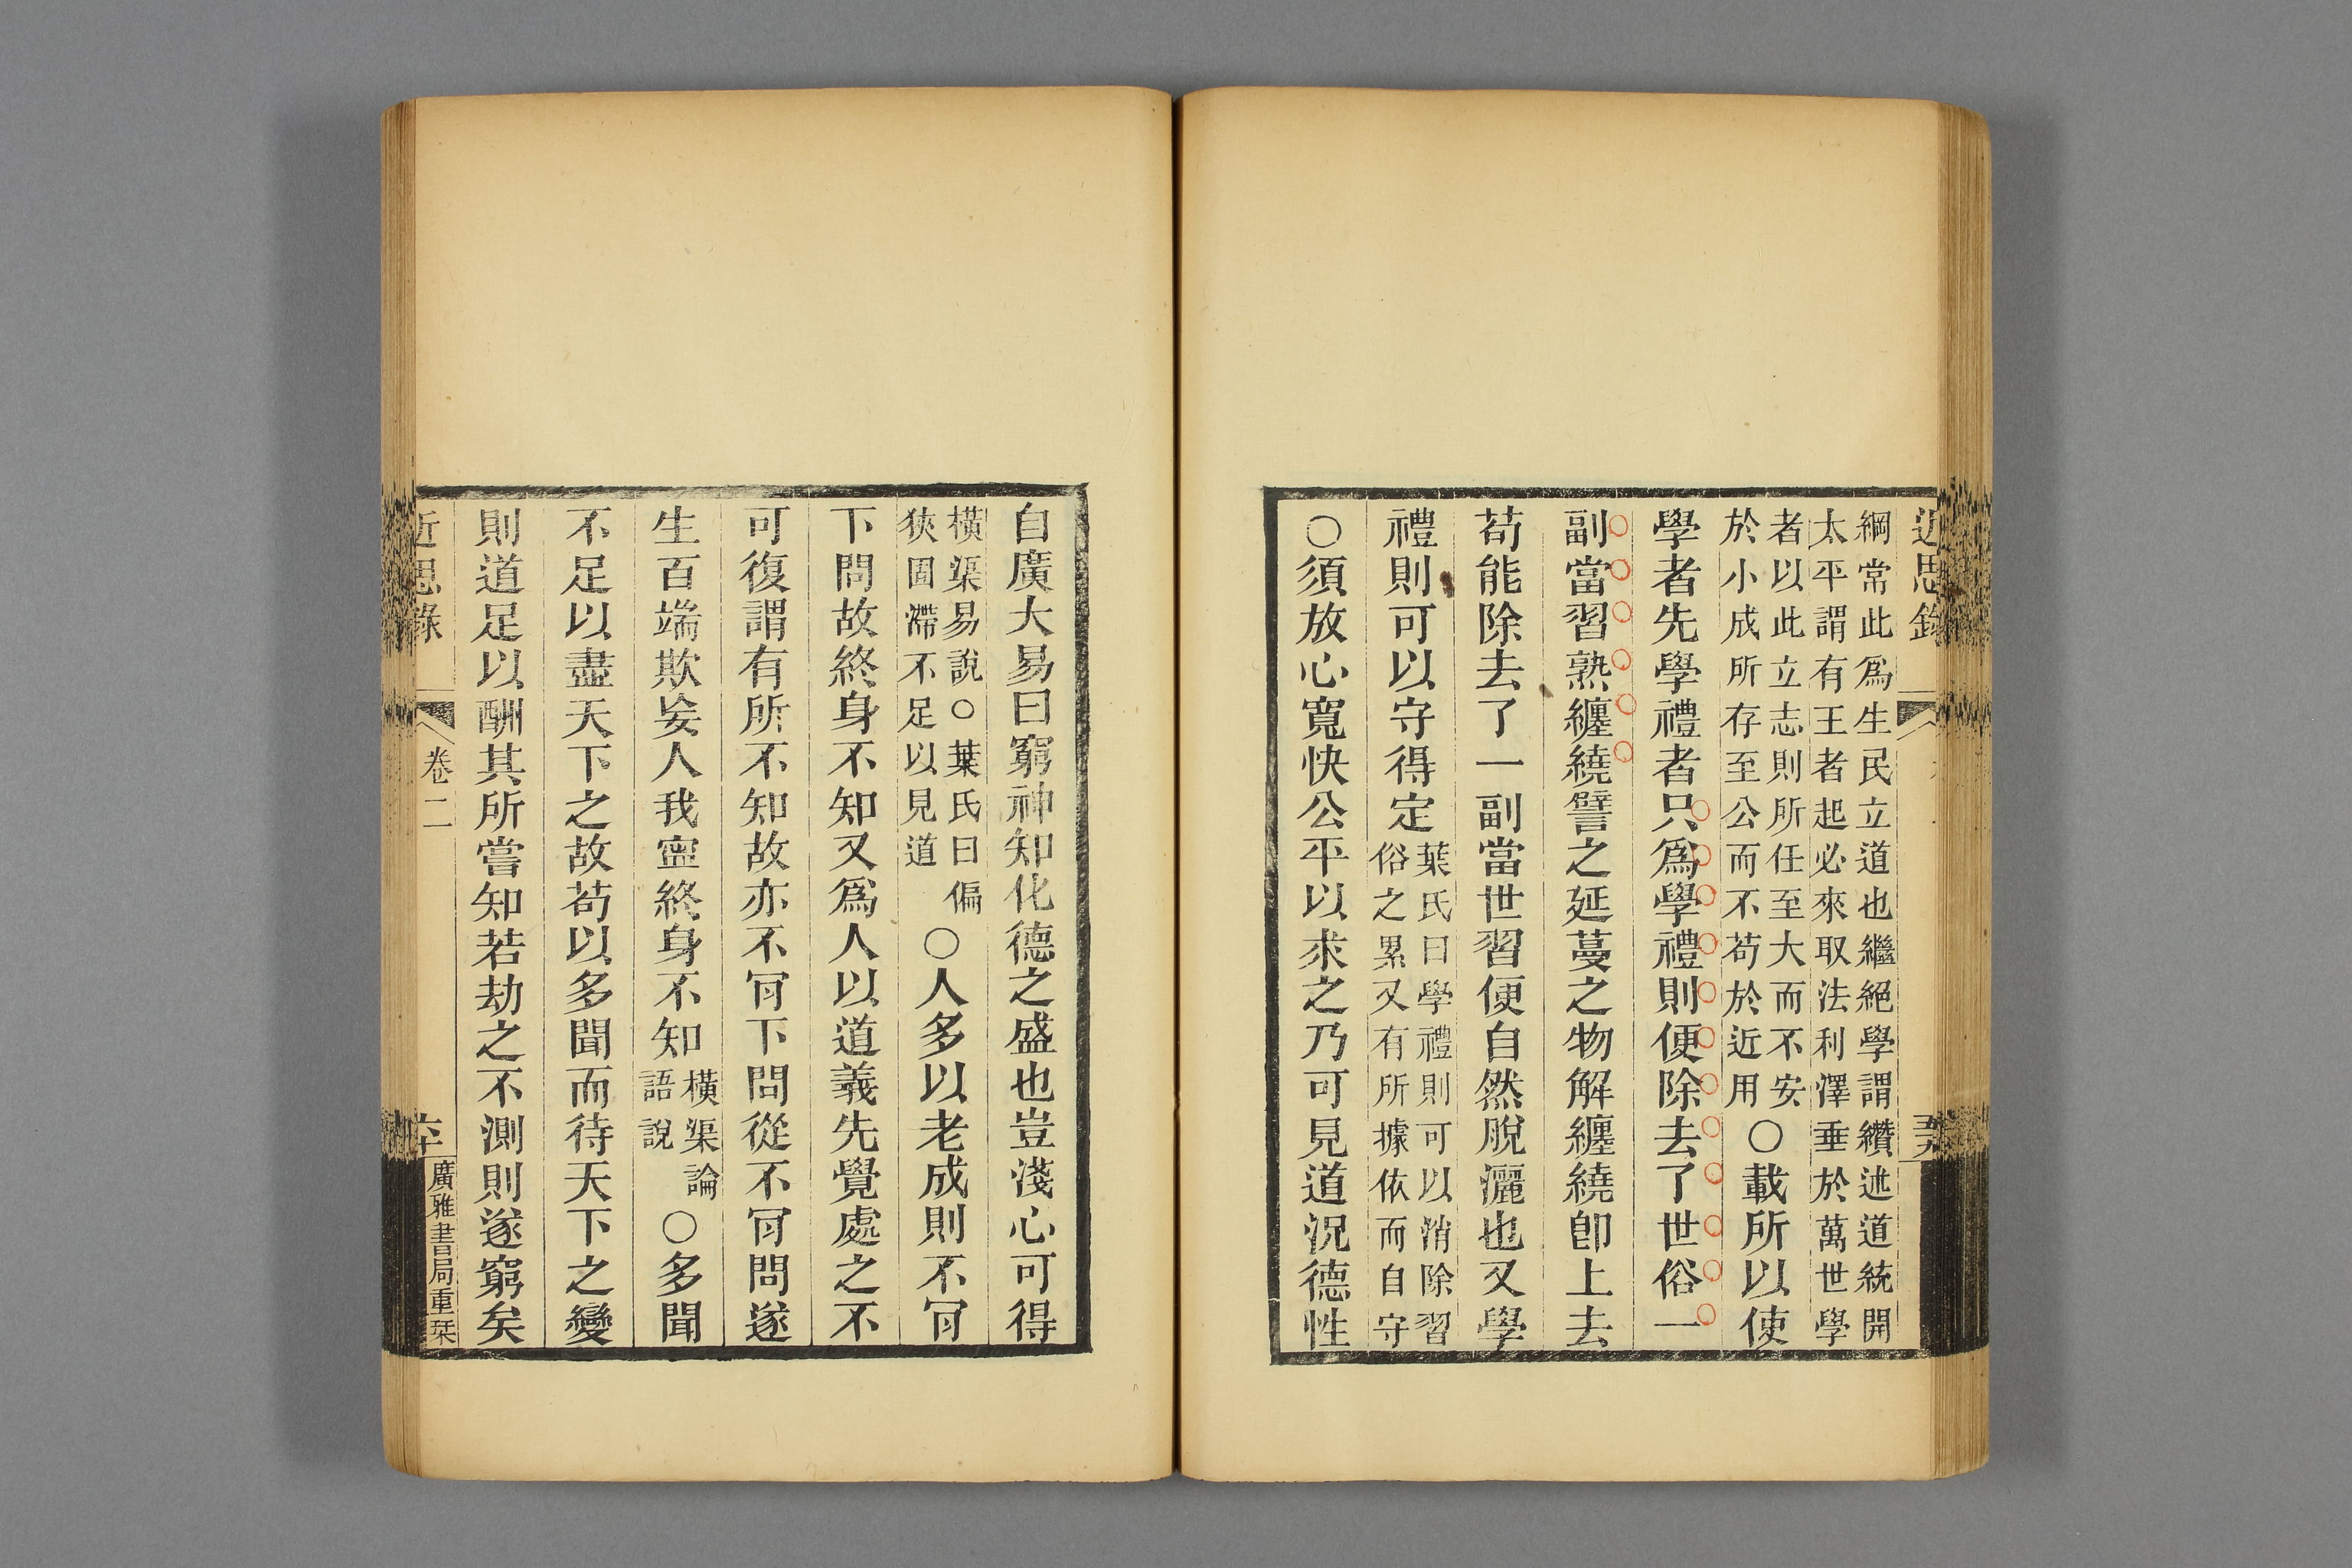 近思錄
五十九
綱常此爲生民立道也繼絕學謂纘述道統開
太平謂有王者起必來取法利澤垂於萬世學
者以此立志則所任至大而不安
於小成所存至公而不苟於近用
○載所以使
學者先學禮者只爲學禮則便除去了世俗一
副當習熟纏繞譬之延蔓之物解纏繞卽上去
苟能除去了一副當世習便自然脫灑也又學
禮則可以守得定
葉氏曰學禮則可以消除習
俗之累又有所據依而自守
○須放心寬快公平以求之乃可見道況德性
自廣大易曰窮神知化德之盛也豈淺心可得
橫渠易說○葉氏曰偏
狹固滯不足以見道
○人多以老成則不肎
下問故終身不知又爲人以道義先覺處之不
可復謂有所不知故亦不肎下問從不肎問遂
生百端欺妄人我寧終身不知
橫渠論
語說
○多聞
不足以盡天下之故苟以多聞而待天下之變
則道足以酬其所嘗知若劫之不測則遂窮矣
近思錄
卷二
六十
廣雅書局重栞